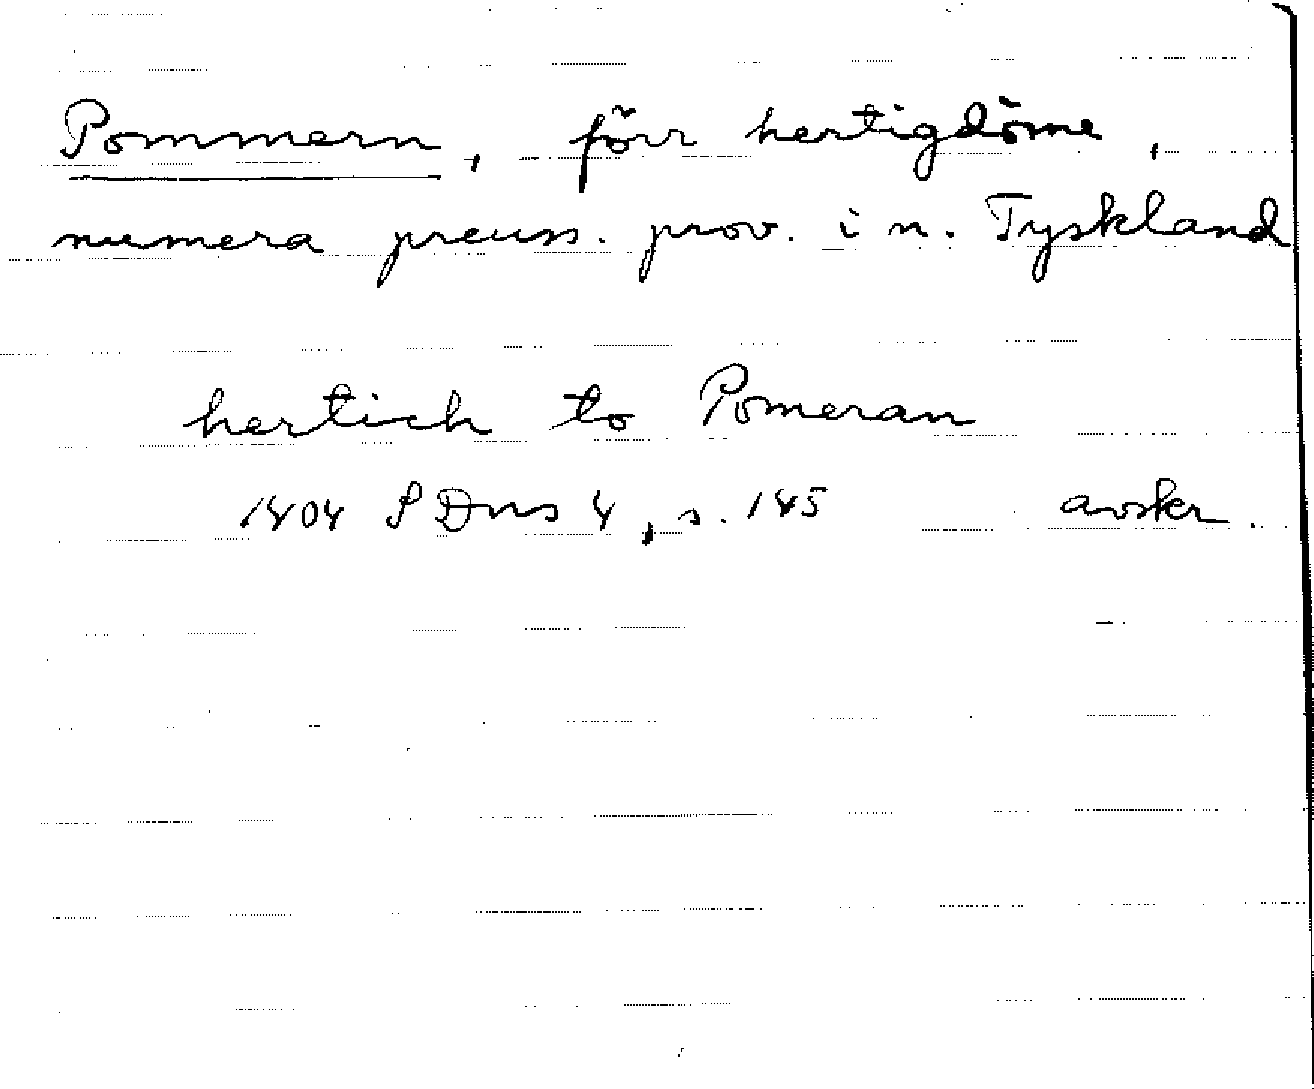 Pommern, förr hertigdöme,
numera preuss. prov. i n. Tyskland
hertich to Pomeran
1404 SDns 4, s. 145 avskr.